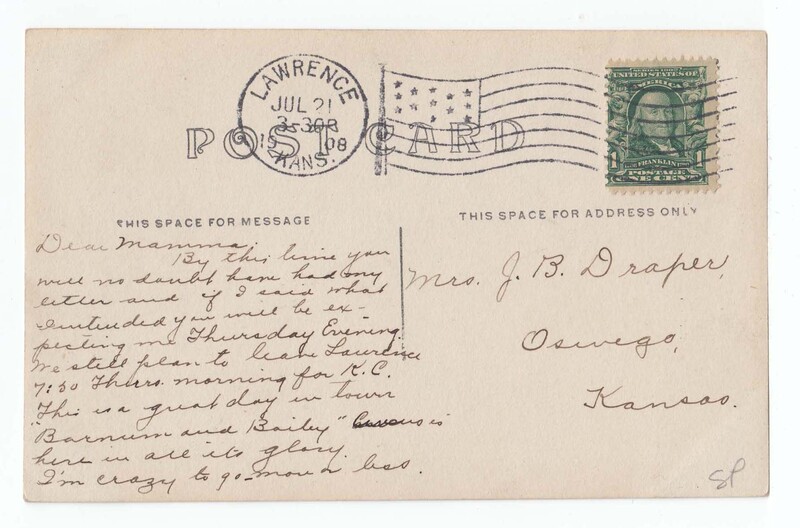 LAWRENCE
JUL 21
3-30P
1908
KANS.
SERIES 1902
UNITED STATES OF
AMERICA
FRANKLIN
1 1
POSTAGE
ONE CENT
POST CARD
THIS SPACE FOR MESSAGE
THIS SPACE FOR ADDRESS ONLY
Dear Mamma;
By this time you
will no doubt have had my
letter and if I said what
I intended you will be ex-
pecting me Thursday Evening.
We still plan to leave Lawrence
7:30 Thurs. morning for K.C.
This is a great day in town
"Barnum and Bailey" is
here in all its glory.
I'm crazy to go - more or less.
Mrs. J. B. Draper,
Oswego,
Kansas.
SP